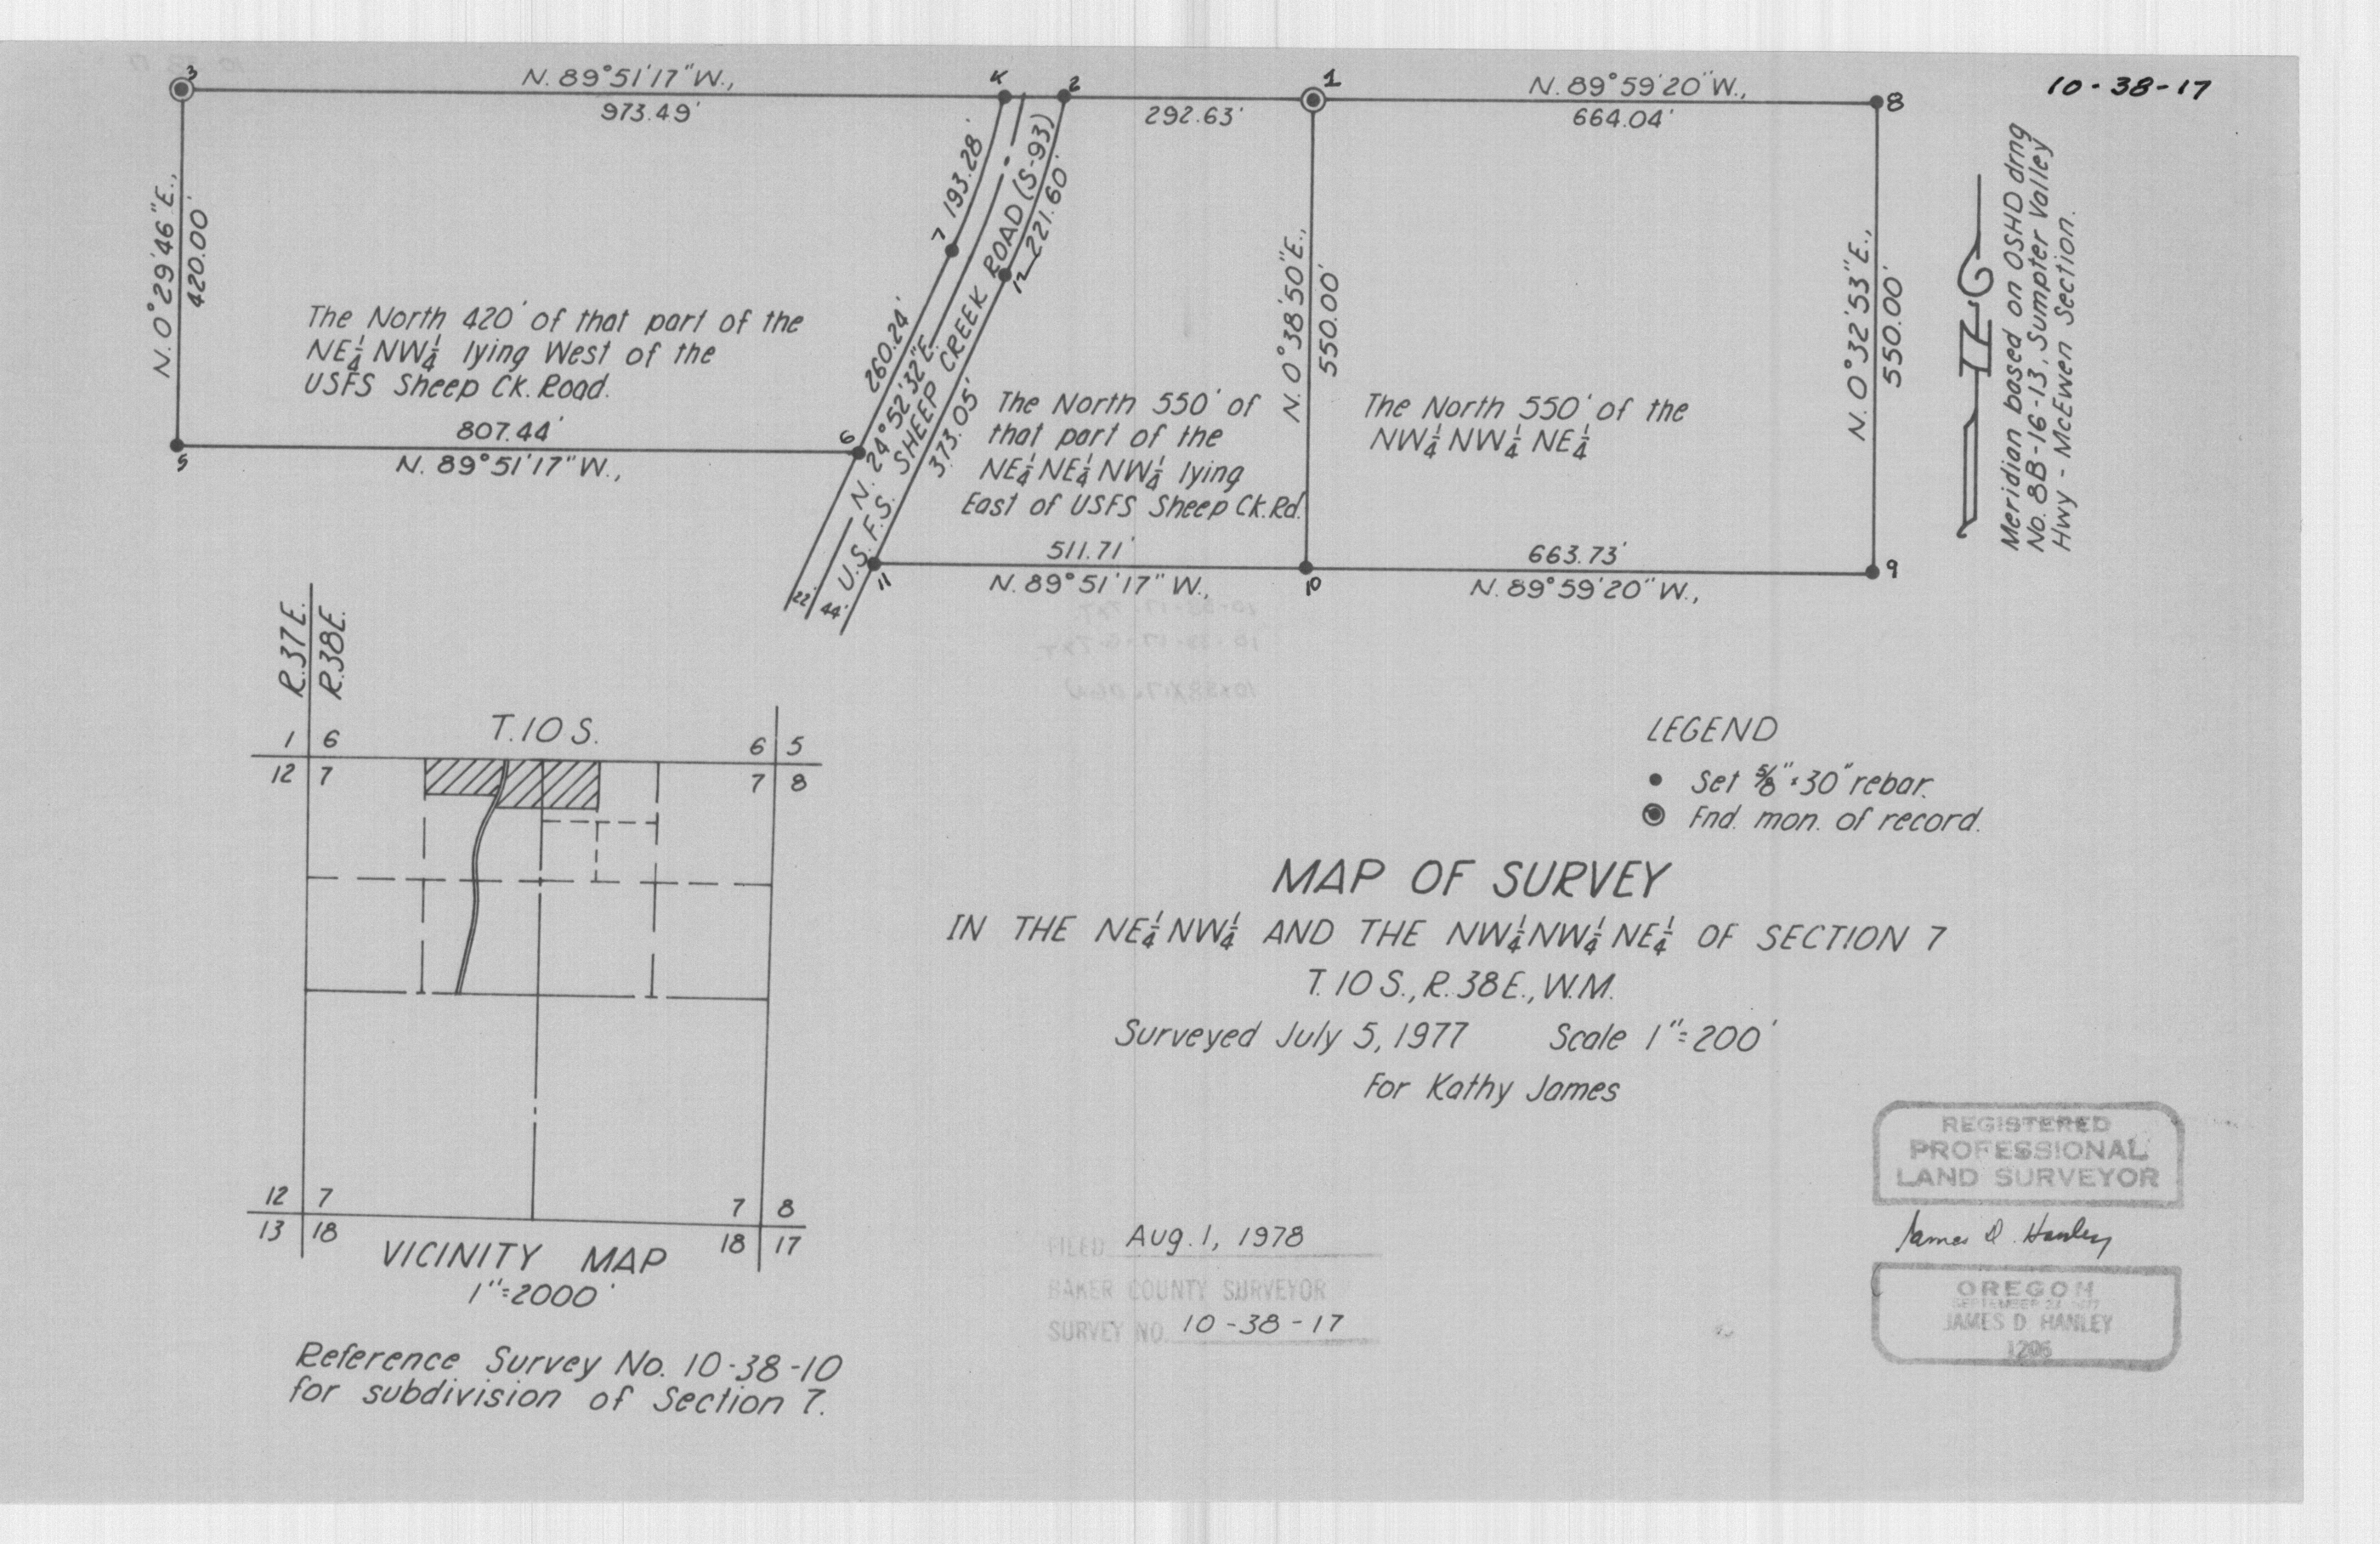 10-38-17
3
N. 89°51'17"W.,
973.49'
4
2
292.63'
1
N. 89°59'20"W.,
664.04'
8
N. 0°29'46"E.,
420.00'
7
193.28'
260.24'
N. 24°52'32"E.
U.S.F.S. SHEEP CREEK ROAD (S-93)
12
221.60'
373.05'
N. 0°38'50"E.,
550.00'
N. 0°32'53"E.,
550.00'
The North 420' of that part of the
NE¼ NW¼ lying West of the
USFS Sheep Ck. Road.
The North 550' of
that part of the
NE¼ NE¼ NW¼ lying
East of USFS Sheep Ck. Rd.
The North 550' of the
NW¼ NW¼ NE¼
807.44'
N. 89°51'17"W.,
5
6
22'
44'
11
511.71'
N. 89°51'17"W.,
10
663.73'
N. 89°59'20"W.,
9
N
Meridian based on OSHD drng
No. 8B-16-13, Sumpter Valley
Hwy - McEwen Section.
R.37E.
R.38E.
T.10S.
1 6
12 7
6 5
7 8
12 7
13 18
7 8
18 17
VICINITY MAP
1"=2000'
Reference Survey No. 10-38-10
for subdivision of Section 7.
LEGEND
Set ⅝"×30" rebar.
Fnd. mon. of record.
MAP OF SURVEY
IN THE NE¼ NW¼ AND THE NW¼ NW¼ NE¼ OF SECTION 7
T. 10S., R. 38E., W.M.
Surveyed July 5, 1977 Scale 1"=200'
For Kathy James
FILED Aug. 1, 1978
BAKER COUNTY SURVEYOR
SURVEY NO. 10-38-17
REGISTERED
PROFESSIONAL
LAND SURVEYOR
James D. Hanley
OREGON
JAMES D. HANLEY
1206